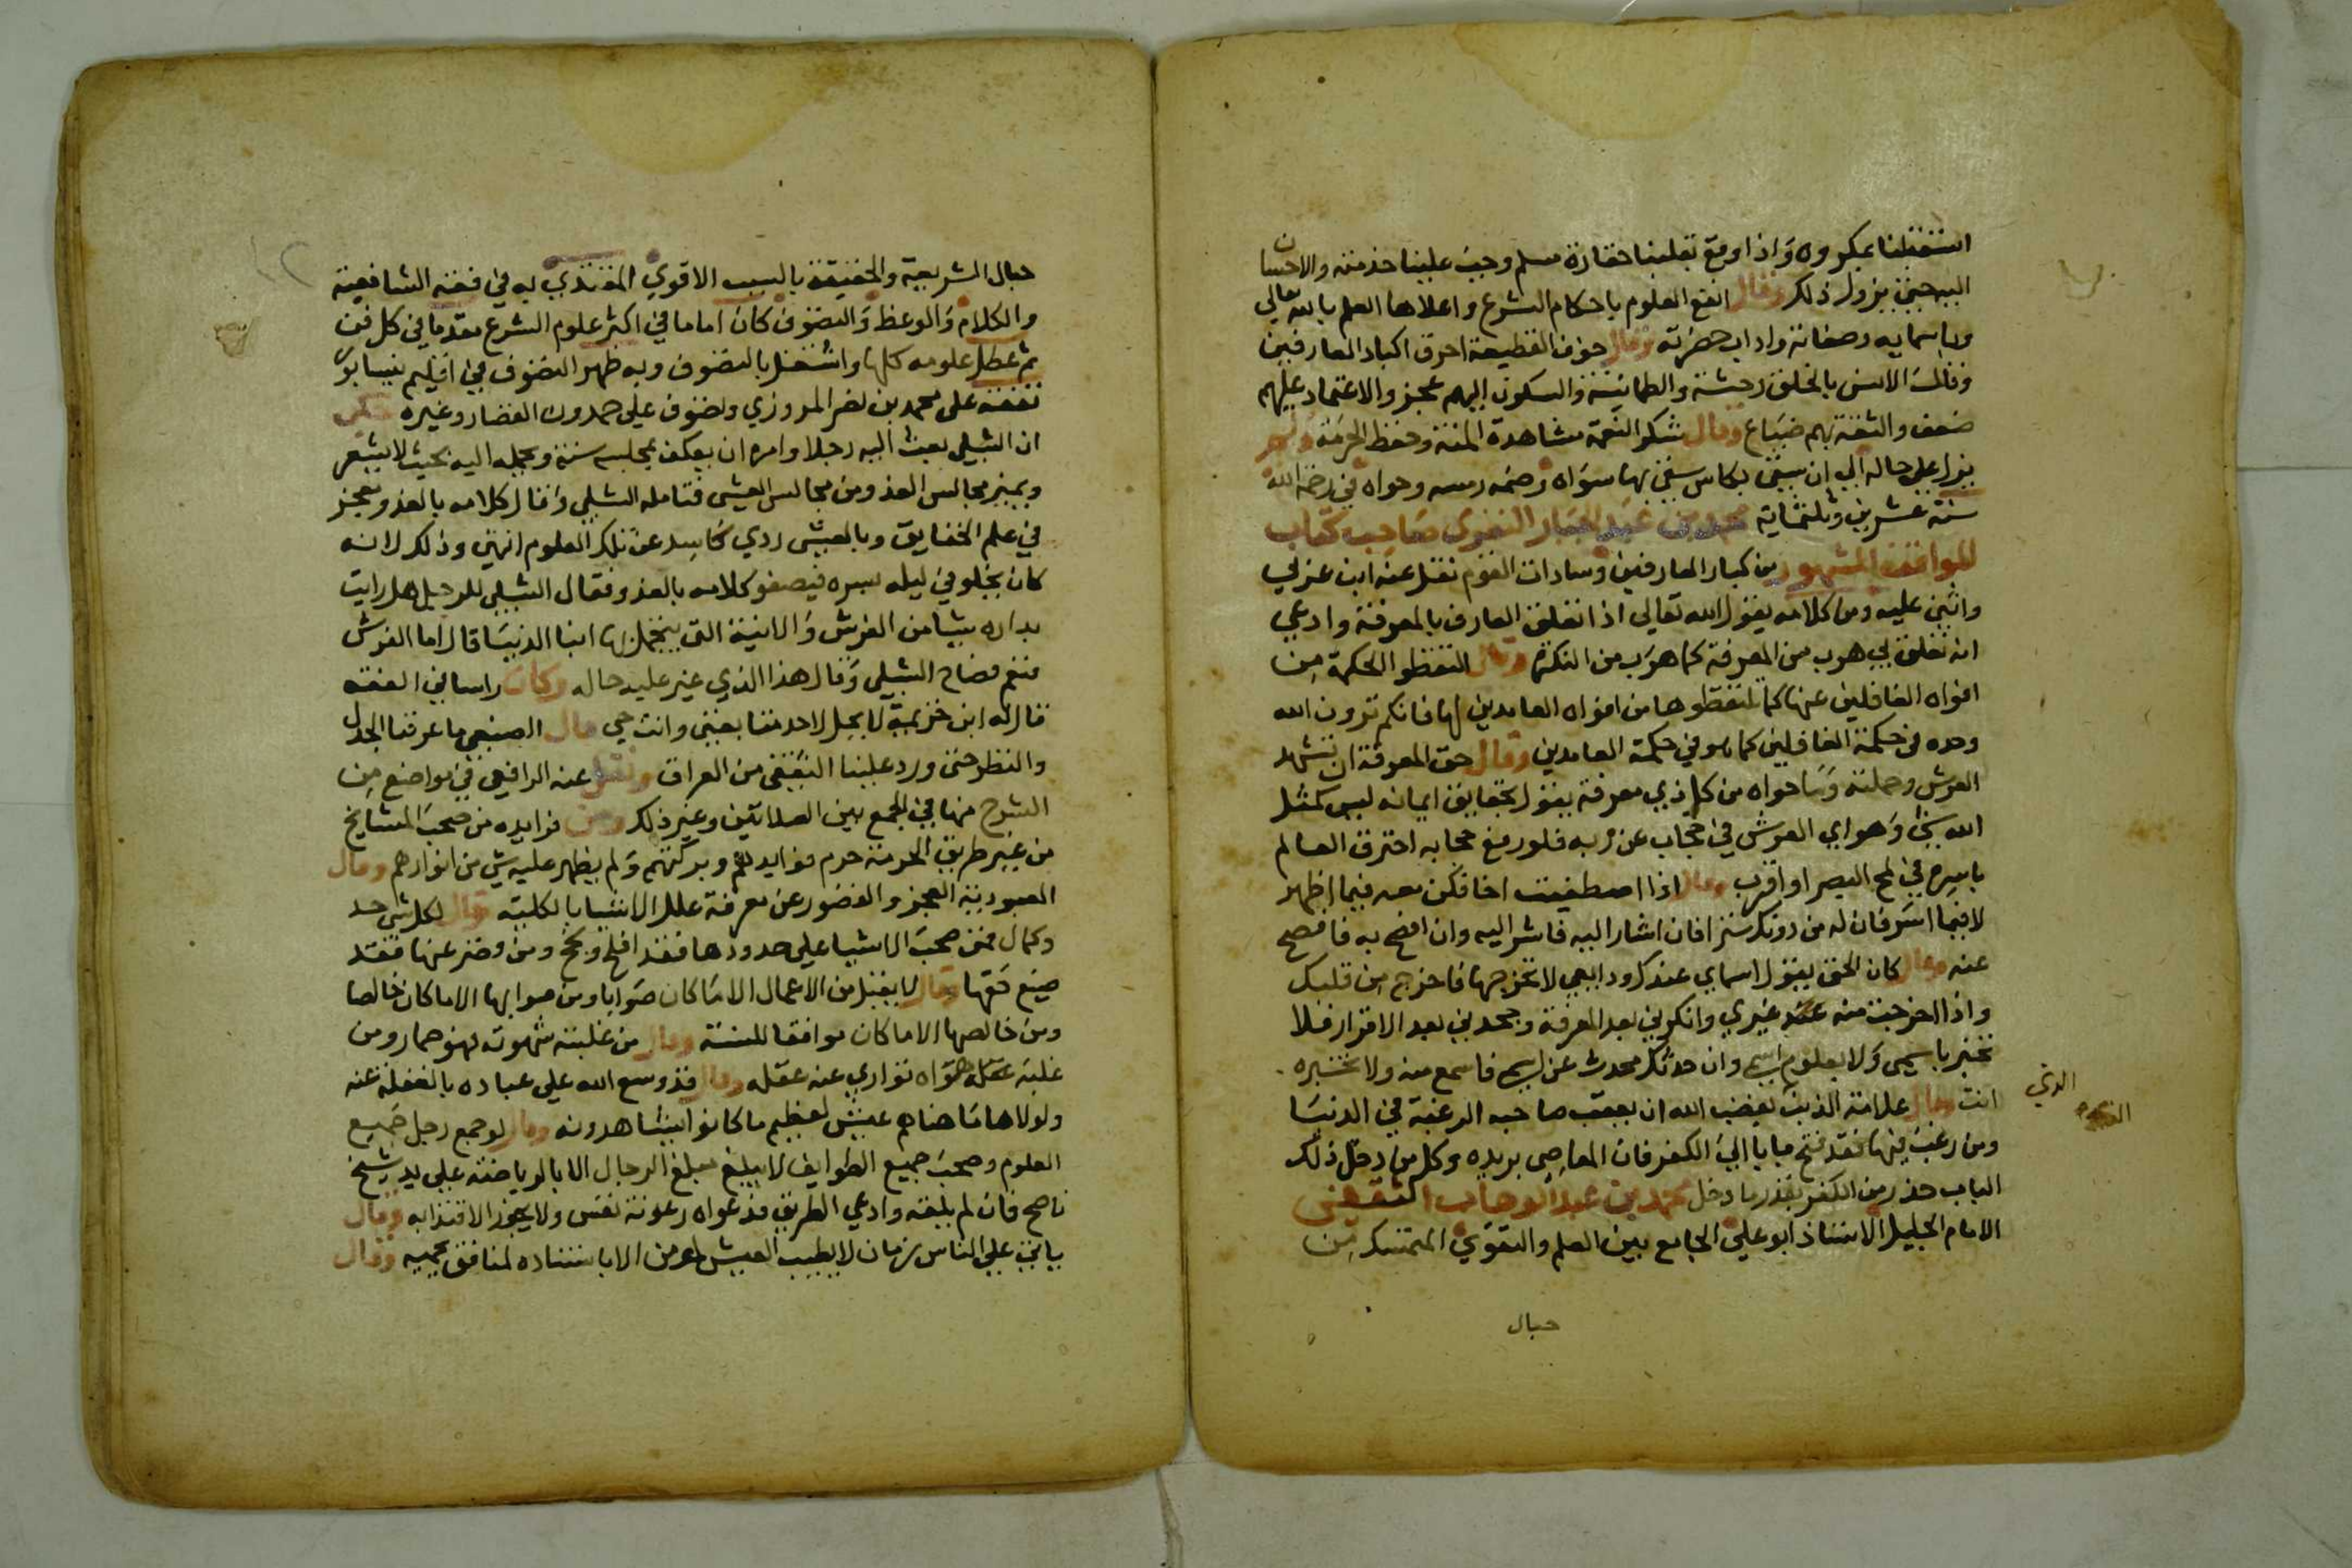 استقبلنا بمكروه واذا وقع بقلبنا حقارة مسلم وجب علينا خدمته والاحسان
اليه حتى يزول ذلك وقال انفع العلوم باحكام الشرع واعلاها العلم بالله تعالى
وباسمايه وصفاته واداب حضرته وقال خوف القطيعة احرق اكباد العارفين
وقال الانس بالخلق وحشة والطمانينة والسكون اليهم عجز والاعتماد عليهم
ضعف والثقة بهم ضياع وقال شكر النعمة مشاهدة المنة وحفظ الحرمة ولم
يزل على حاله الى ان سقى بكاس سقى بها سواه وضمه رمسه وحواه في رحمة الله
سنة عشرين وثلثماية محمد بن عبد الجبار النفرى صاحب كتاب
المواقف المشهور من كبار العارفين وسادات القوم نقل عنه ابن عربي
واثنى عليه ومن كلامه يقول الله تعالى اذا تعلق العارف بالمعرفة وادعى
انه تعلق بي هرب من المعرفة كما هرب من النكرة وقال التقطوا الحكمة من
افواه الغافلين عنها كما تلتقطوها من افواه العامدين لها فانكم ترون الله
وحده في حكمة الغافلين كما هو في حكمة العامدين وقال حق المعرفة ان تشهد
العرش وحملته وما حواه من كل ذي معرفة يقول بحقايق ايمانه ليس كمثل
الله شي وهو اي العرش في حجاب عن ربه فلو رفع حجابه احترق العالم
باسره في لمح البصر او اقرب وقال اذا اصطفيت اخا فكن معه فيما اظهر
لا فيما اسر فان له من دونك سترا فان اشار اليه فاشر اليه وان افصح به فافصح
عنه وقال كان الحق يقول اسماي عندك ودايعي لا تخرجها فاخرج من قلبك
واذا اخرجت منه عبد غيري وانكرني بعد المعرفة وجحدني بعد الاقرار فلا
تخبر باسمي ولا بعلوم اسمي وان حدثك محدث عن اسمي فاسمع منه ولا تخبره
انت وقال علامة الذنب يغضب الله ان يعقب صاحبه الرغبة في الدنيا
الذي
ومن رغب فيها فقد فتح بابا الى الكفر فان المعاصي بريده وكل من دخل ذلك
الباب حذر من الكفر بقدر ما دخل محمد بن عبد الوهاب الثقفي
الامام الجليل الاستاذ ابو علي الجامع بين العلم والتقوي المتمسك من
حبال
حبال الشريعة والحقيقة بالسبب الاقوي المقتدي به في فقه الشافعية
والكلام والوعظ والتصوف كان اماما في اكثر علوم الشرع مقدما في كل فن
ثم عطل علومه كلها واشتغل بالتصوف وبه ظهر التصوف في اقليم نيسابور
تفقه على محمد بن نصر المروزي وتصوف على حمدون القصار وغيره حكى
ان الشبلي بعث اليه رجلا وامره ان يعكف بمجلسه سنة ويحمله اليه بحيث لا يشعر
ويميز مجالس الغدو من مجالس العشى فتامله الشبلي وقال كلامه بالغدو معجز
في علم الحقايق وبالعشى ردي كاسد عن تلك العلوم انتهى وذلك لانه
كان يخلو في ليله بسره فيصفو كلامه بالغدو فقال الشبلي للرجل هل رايت
بداره شيا من الفرش والانية التي يتجمل بها ابنا الدنيا قال اما الفرش
فنعم فصاح الشبلي وقال هذا الذي غير عليه حاله وكان راسا في الفقه
قال له ابن خزيمة لا يحل لاحد منا يفتي وانت حي قال الصبغي ما عرفنا الجدل
والنظر حتى ورد علينا الثقفي من العراق ونقل عنه الرافعي في مواضع من
الشرح منها في الجمع بين الصلاتين وغير ذلك ومن فوايده من صحب المشايخ
من غير طريق الحرمة حرم فوايدهم وبركتهم ولم يظهر عليه شي من انوارهم وقال
العبودية العجز والقصور عن معرفة علل الاشيا بالكلية وقال لكل شي حد
وكمال فمن صحب الاشيا على حدودها فقد افلح ونجح ومن قصر عنها فقد
ضيع حقها وقال لا يقبل من الاعمال الا ما كان صوابا ومن صوابها الا ما كان خالصا
ومن خالصها الا ما كان موافقا للسنة وقال من غلبته شهوته فهو حمار ومن
غلبه هواه تواري عنه عقله وقال قد وسع الله على عباده بالغفلة عنه
ولولاها ما هناهم عيش لعظيم ما كانوا يشاهدونه وقال لو جمع رجل جميع
العلوم وصحب جميع الطوايف لا يبلغ مبلغ الرجال الا بالرياضة على يد شيخ
ناصح فان لم يلقه وادعي الطريق فدعواه رعونة نفس ولا يجوز الاقتدا به وقال
ياتي على الناس زمان لا يطيب العيش لمومن الا باستناده لمنافق يحميه وقال